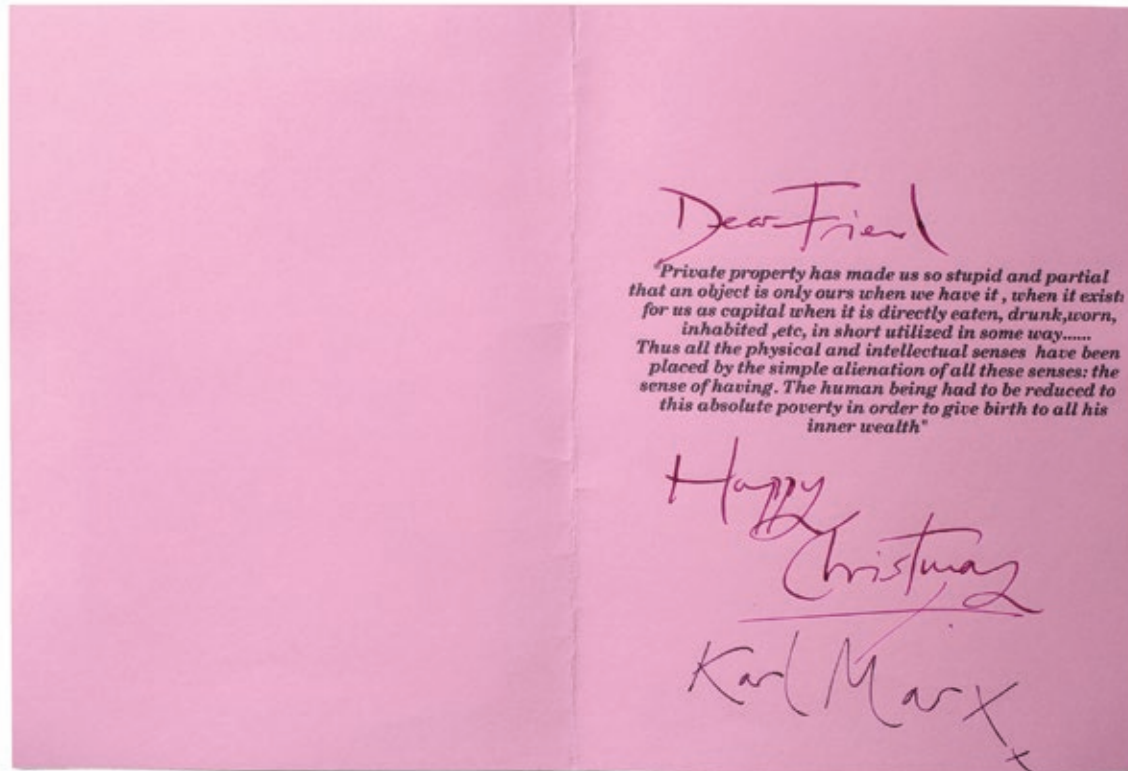 Dear Friend
"Private property has made us so stupid and partial
that an object is only ours when we have it , when it exists
for us as capital when it is directly eaten, drunk,worn,
inhabited ,etc, in short utilized in some way......
Thus all the physical and intellectual senses have been
placed by the simple alienation of all these senses: the
sense of having. The human being had to be reduced to
this absolute poverty in order to give birth to all his
inner wealth"
Happy
Christmas
Karl Marx
x